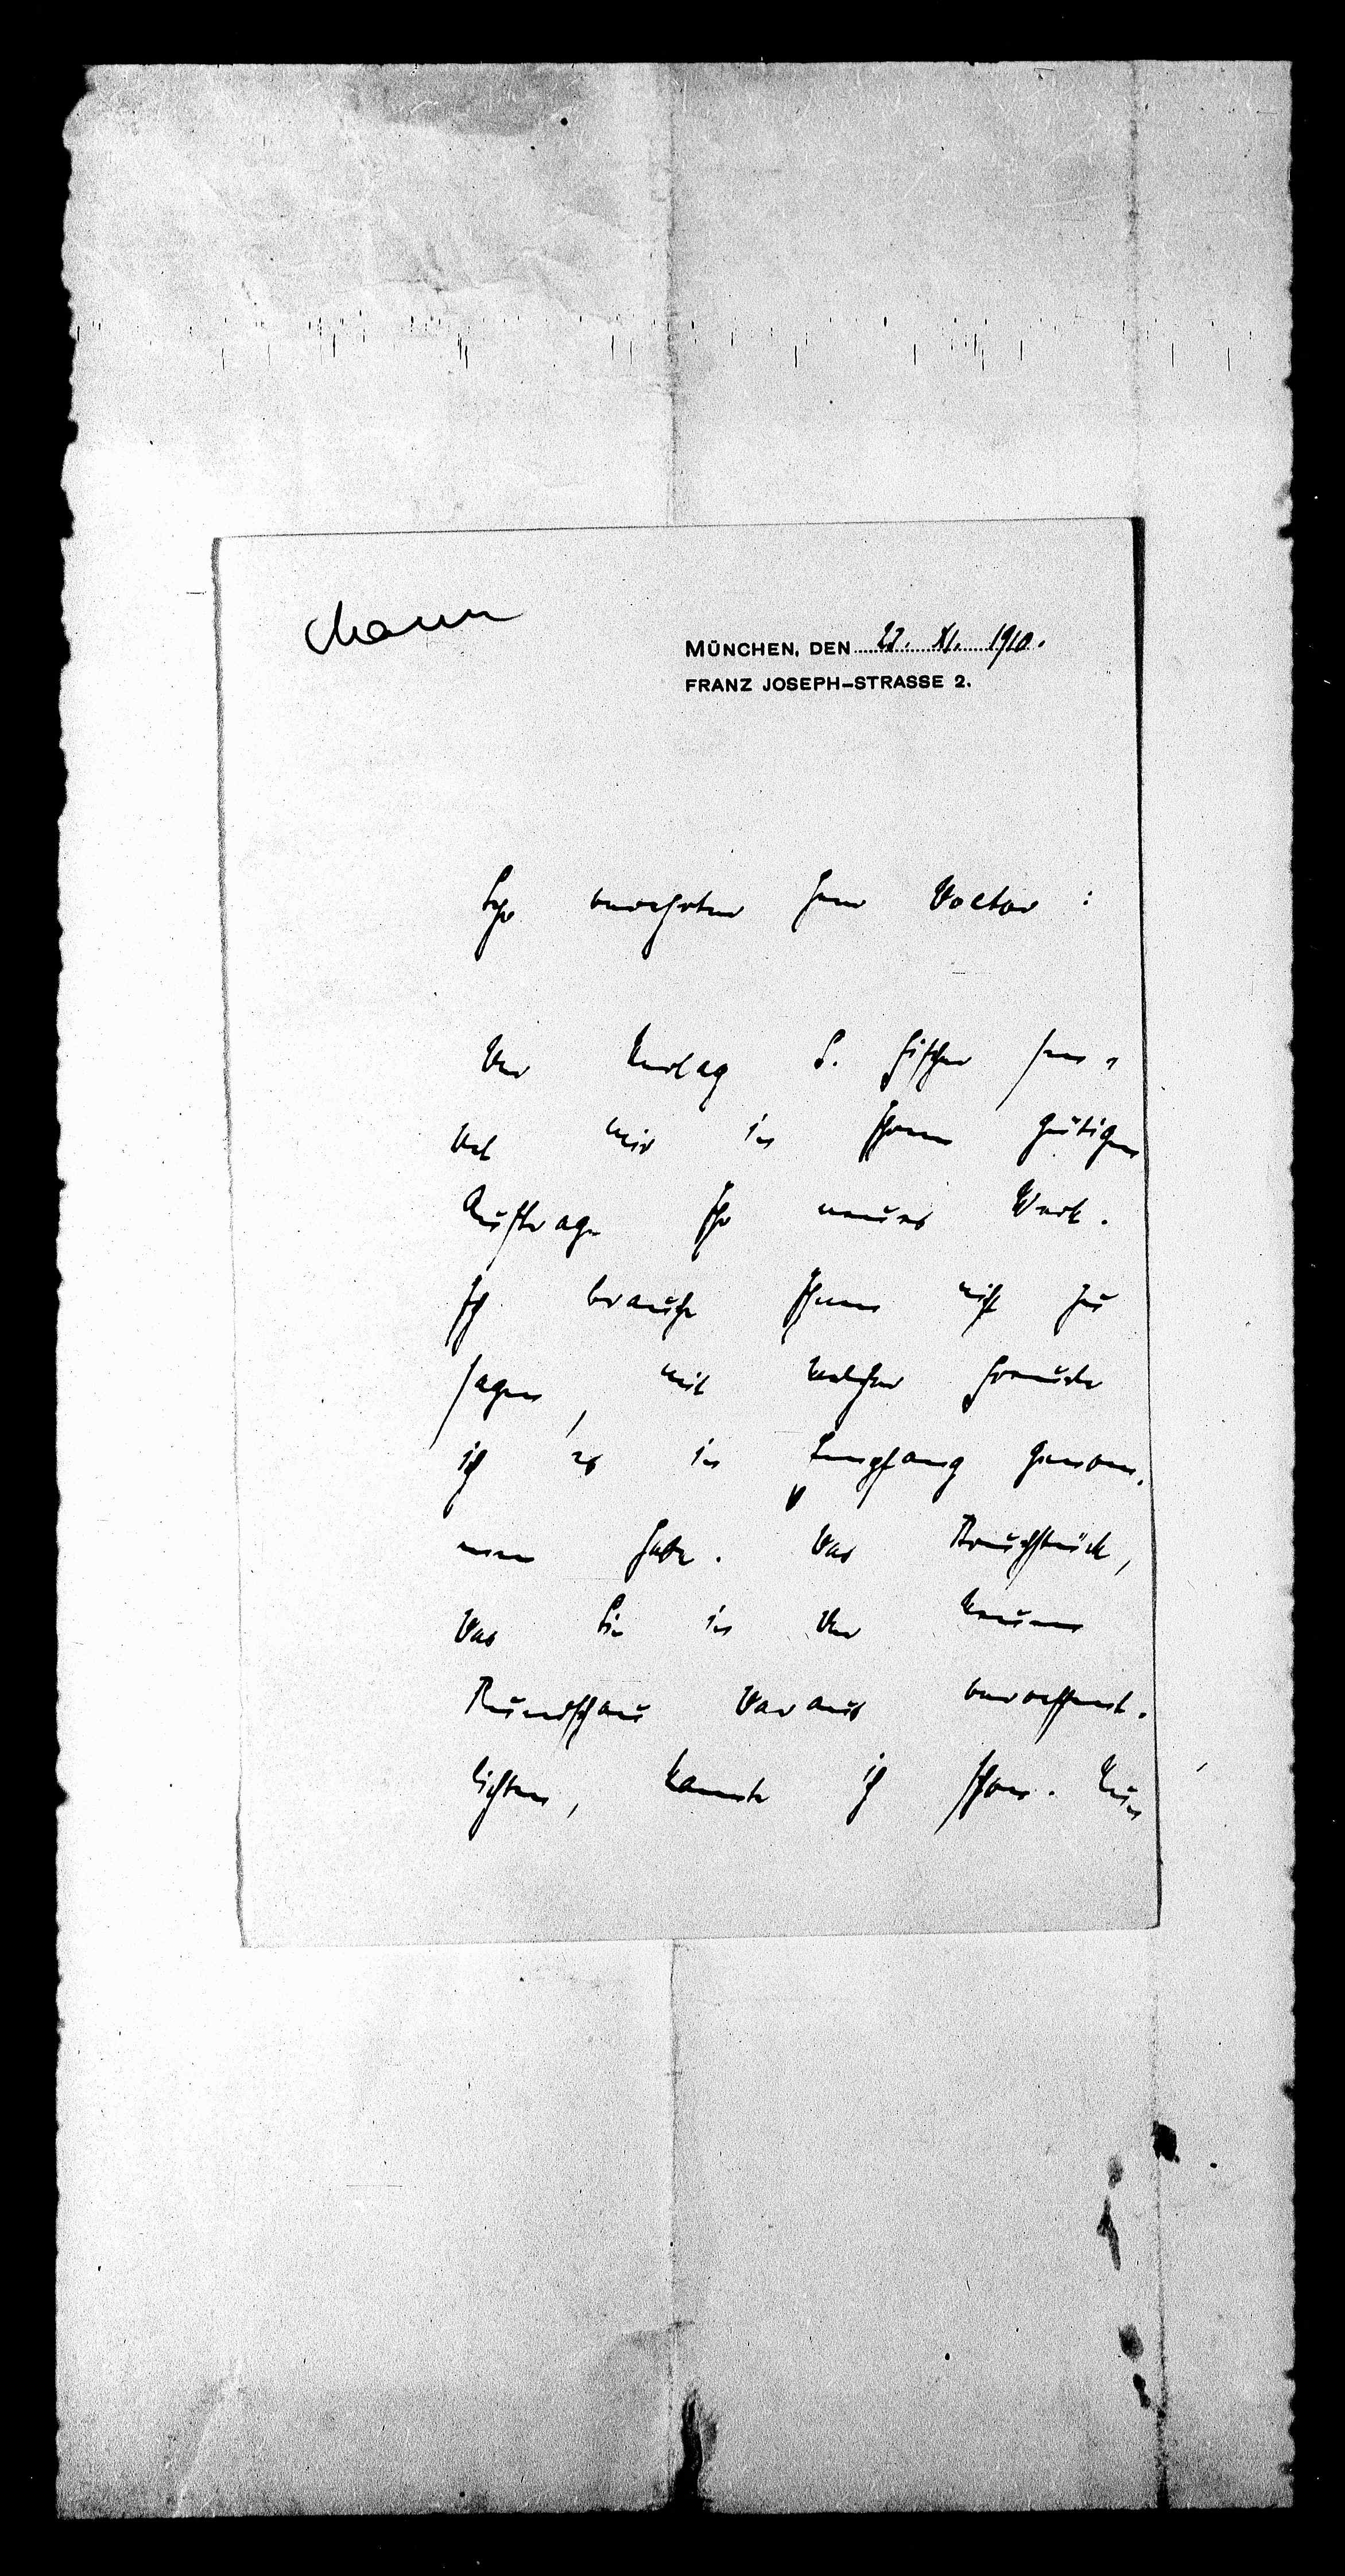 Mann
MÜNCHEN, DEN 22. XI. 1910.
FRANZ JOSEPH-STRASSE 2.
Sehr verehrter Herr Doctor:
Der Verlag S. Fischer sen-
det mir in Ihrem gütigen
Auftrage Ihr neues Werk.
Ich brauche Ihnen nicht zu
sagen, mit welcher Freude
ich es in Empfang genom-
men habe. Das Bruchstück,
das Sie in der Neuen
Rundschau daraus veroeffent-
lichten, kannte ich schon. Nun